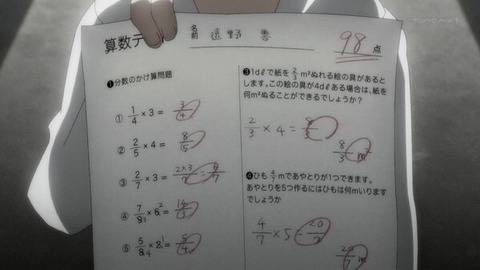 算数テ
名前 遠野 香
98点
❶分数のかけ算問題
① 1/4×3=3/4
② 2/5×4=8/5
③ 2/7×3=2×3/7=6/7
④
⑤
❸1dℓで紙を2/3m²ぬれる絵の具があると
します。この絵の具が4dℓある場合は、紙を
何m²ぬることができるでしょうか?
2/3×4=8/3
8/3 m²
❹ひも4/7mであやとりが1つできます。
あやとりを5つ作るにはひもは何mいりま
すでしょうか
4/7×5=20/7
20/7 m